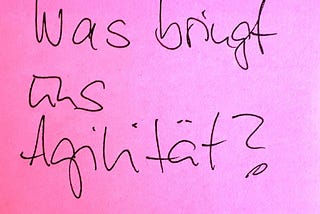 Was bringt
uns
Agilität?